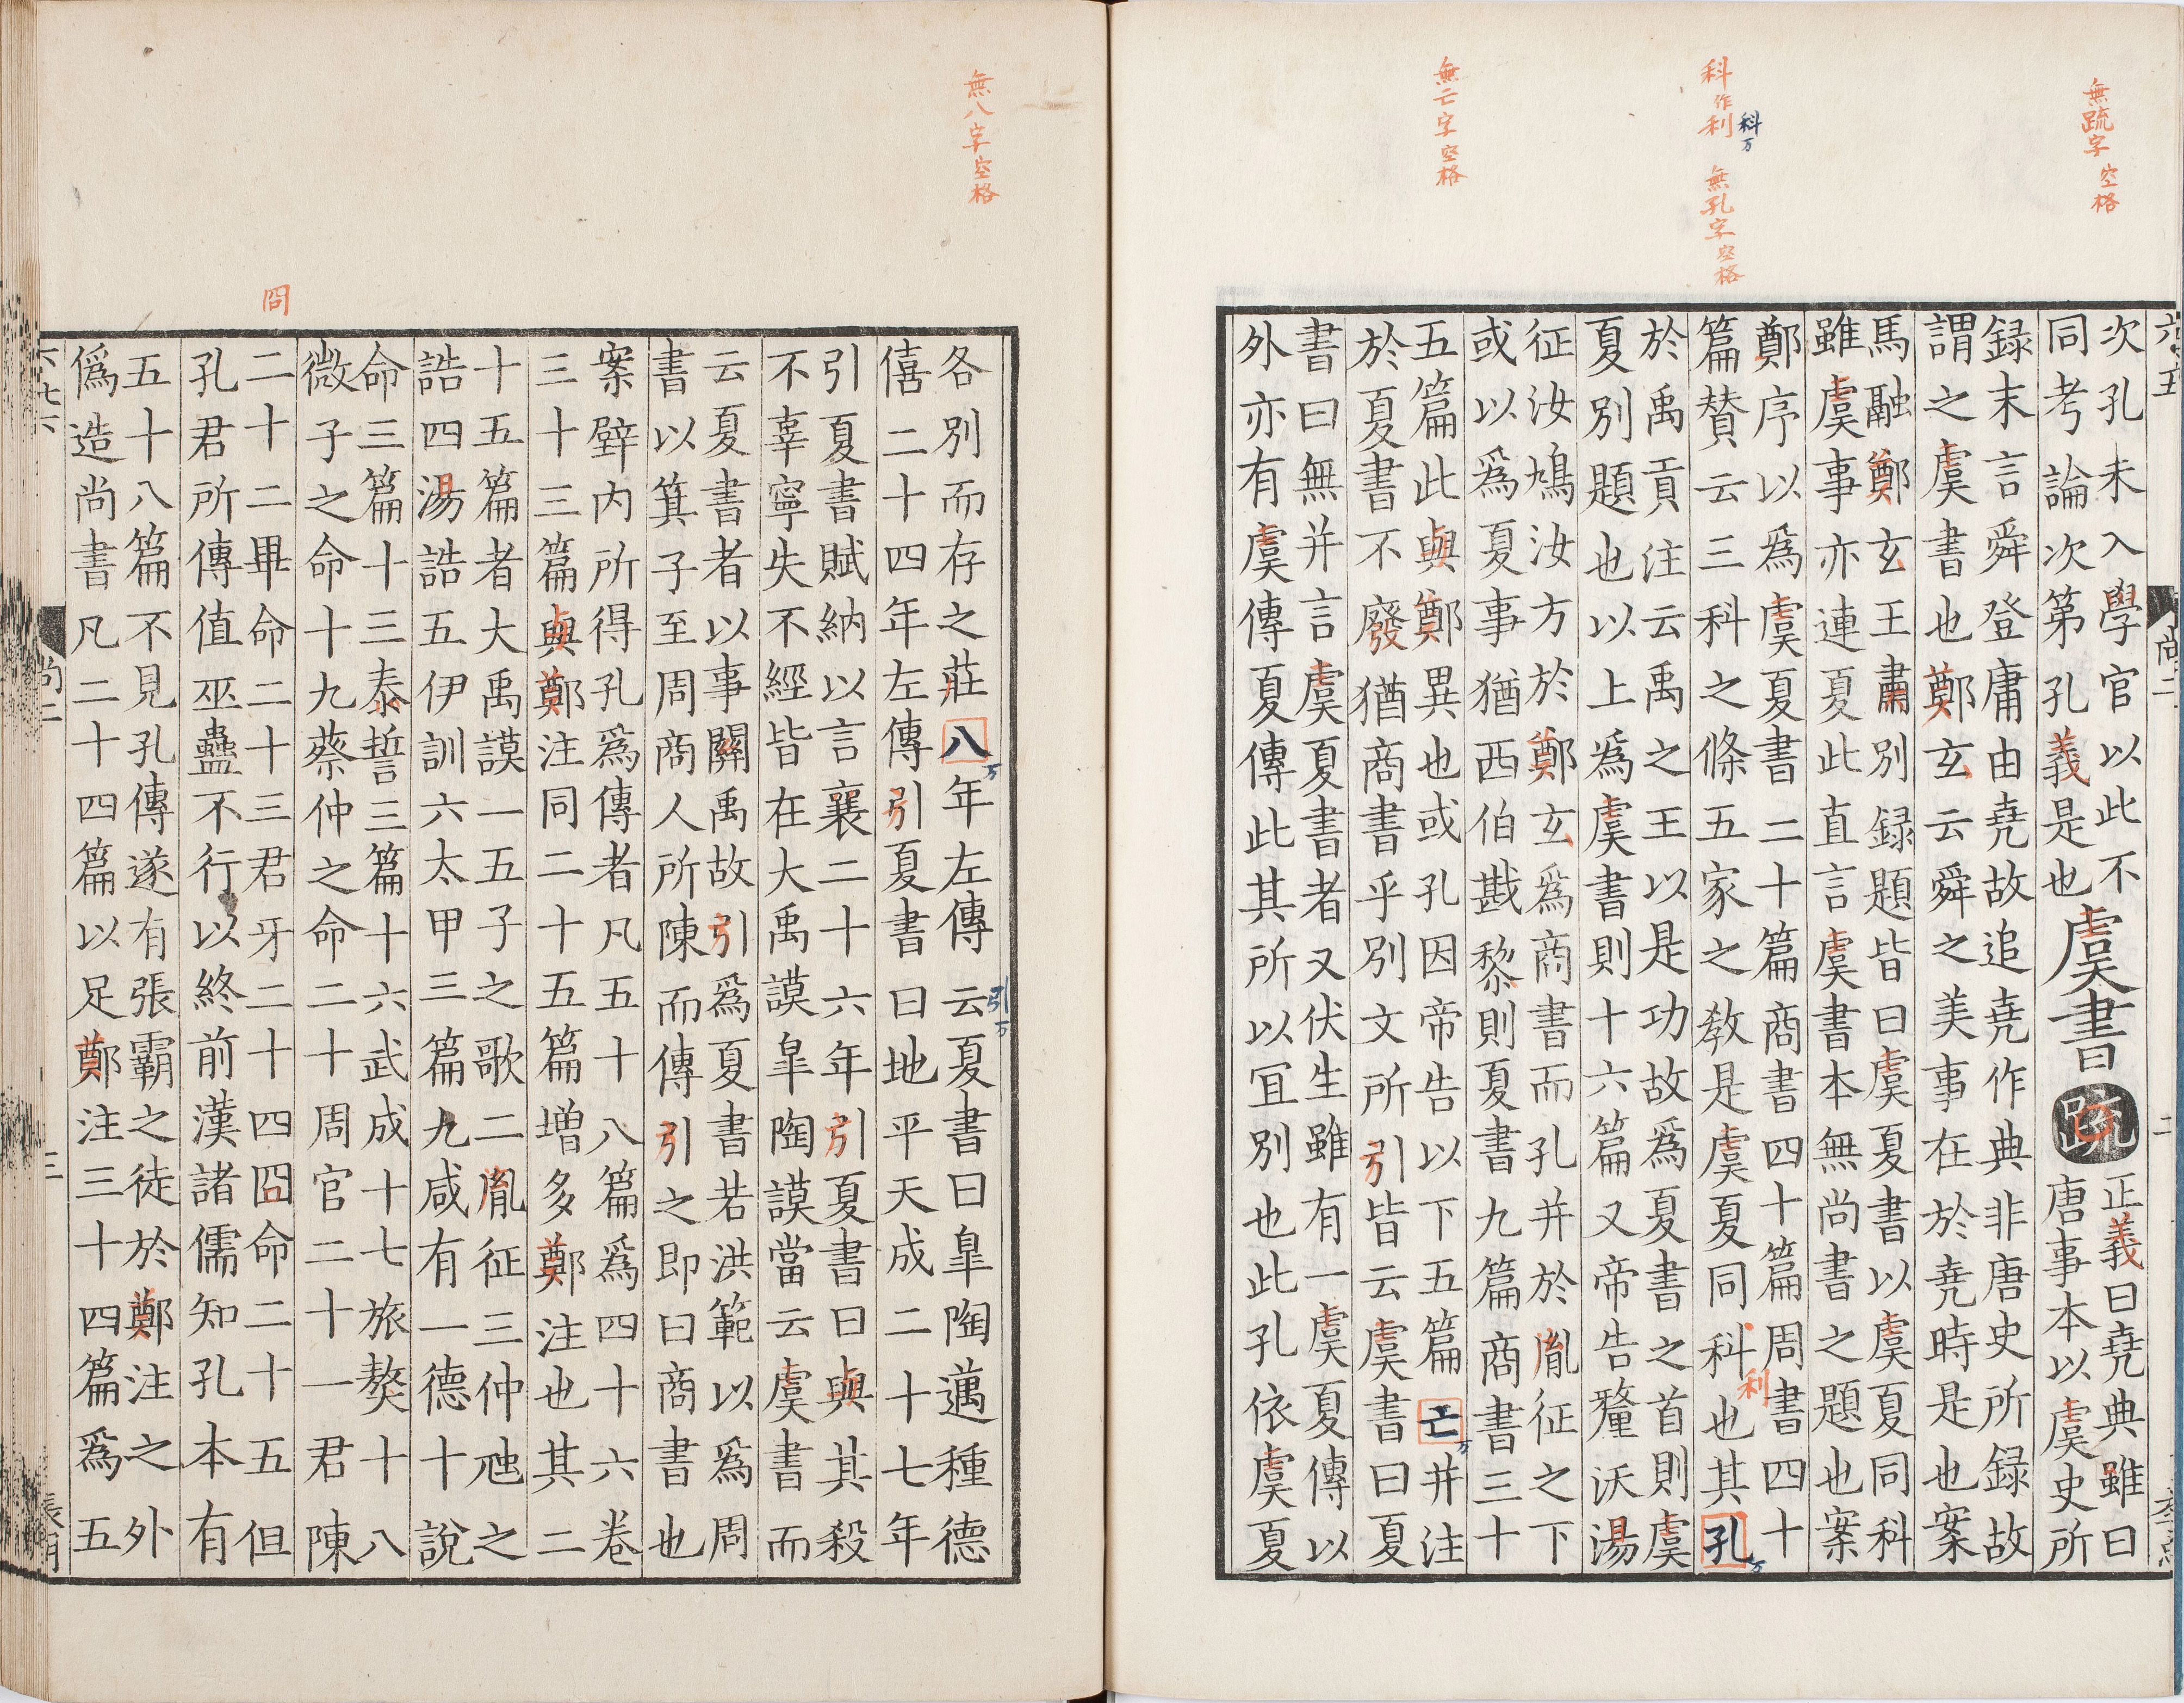 無疏字空格
科作利
科万
無孔字空格
無亡字空格
次孔未入學官以此不
同考論次第孔義是也
虞書
疏
正義曰堯典雖曰
唐事本以虞史所
録末言舜登庸由堯故追堯作典非唐史所録故
謂之虞書也鄭玄云舜之美事在於堯時是也案
馬融鄭玄王肅別録題皆曰虞夏書以虞夏同科
雖虞事亦連夏此直言虞書本無尚書之題也案
鄭序以爲虞夏書二十篇商書四十篇周書四十
篇賛云三科之條五家之教是虞夏同科也其孔万
利
於禹貢注云禹之王以是功故爲夏書之首則虞
夏別題也以上爲虞書則十六篇又帝告釐沃湯
征汝鳩汝方於鄭玄爲商書而孔并於胤征之下
或以爲夏事猶西伯戡黎則夏書九篇商書三十
五篇此與鄭異也或孔因帝告以下五篇亡万并注
於夏書不廢猶商書乎別文所引皆云虞書曰夏
書曰無并言虞夏書者又伏生雖有一虞夏傳以
外亦有虞傳夏傳此其所以冝別也此孔依虞夏
無八字空格
冏
各別而存之莊八万年左傳云夏書曰皐陶邁種德
引万
僖二十四年左傳引夏書曰地平天成二十七年
引夏書賦納以言襄二十六年引夏書曰與其殺
不辜寧失不經皆在大禹謨皐陶謨當云虞書而
云夏書者以事關禹故引爲夏書若洪範以爲周
書以箕子至周商人所陳而傳引之即曰商書也
案壁内所得孔爲傳者凡五十八篇爲四十六卷
三十三篇與鄭注同二十五篇增多鄭注也其二
十五篇者大禹謨一五子之歌二胤征三仲虺之
誥四湯誥五伊訓六太甲三篇九咸有一德十說
命三篇十三泰誓三篇十六武成十七旅獒十八
微子之命十九蔡仲之命二十周官二十一君陳
二十二畢命二十三君牙二十四囧命二十五但
孔君所傳值巫蠱不行以終前漢諸儒知孔本有
五十八篇不見孔傳遂有張霸之徒於鄭注之外
僞造尚書凡二十四篇以足鄭注三十四篇爲五